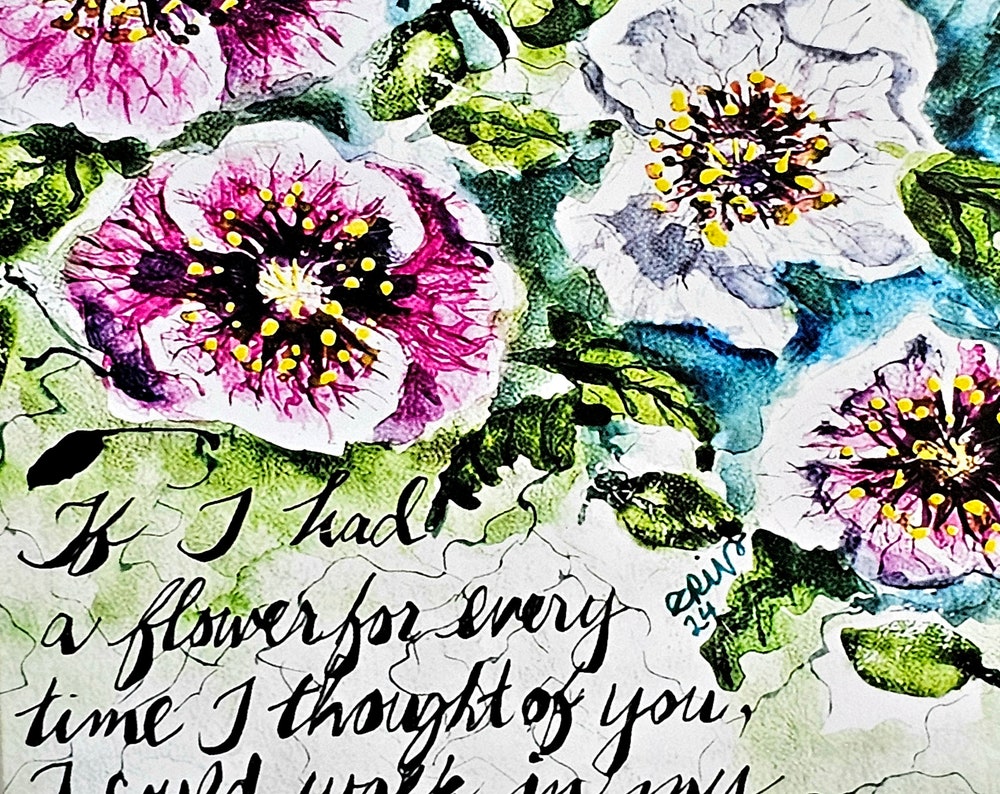 If I had
a flower for every
time I thought of you,
I could walk in my
24